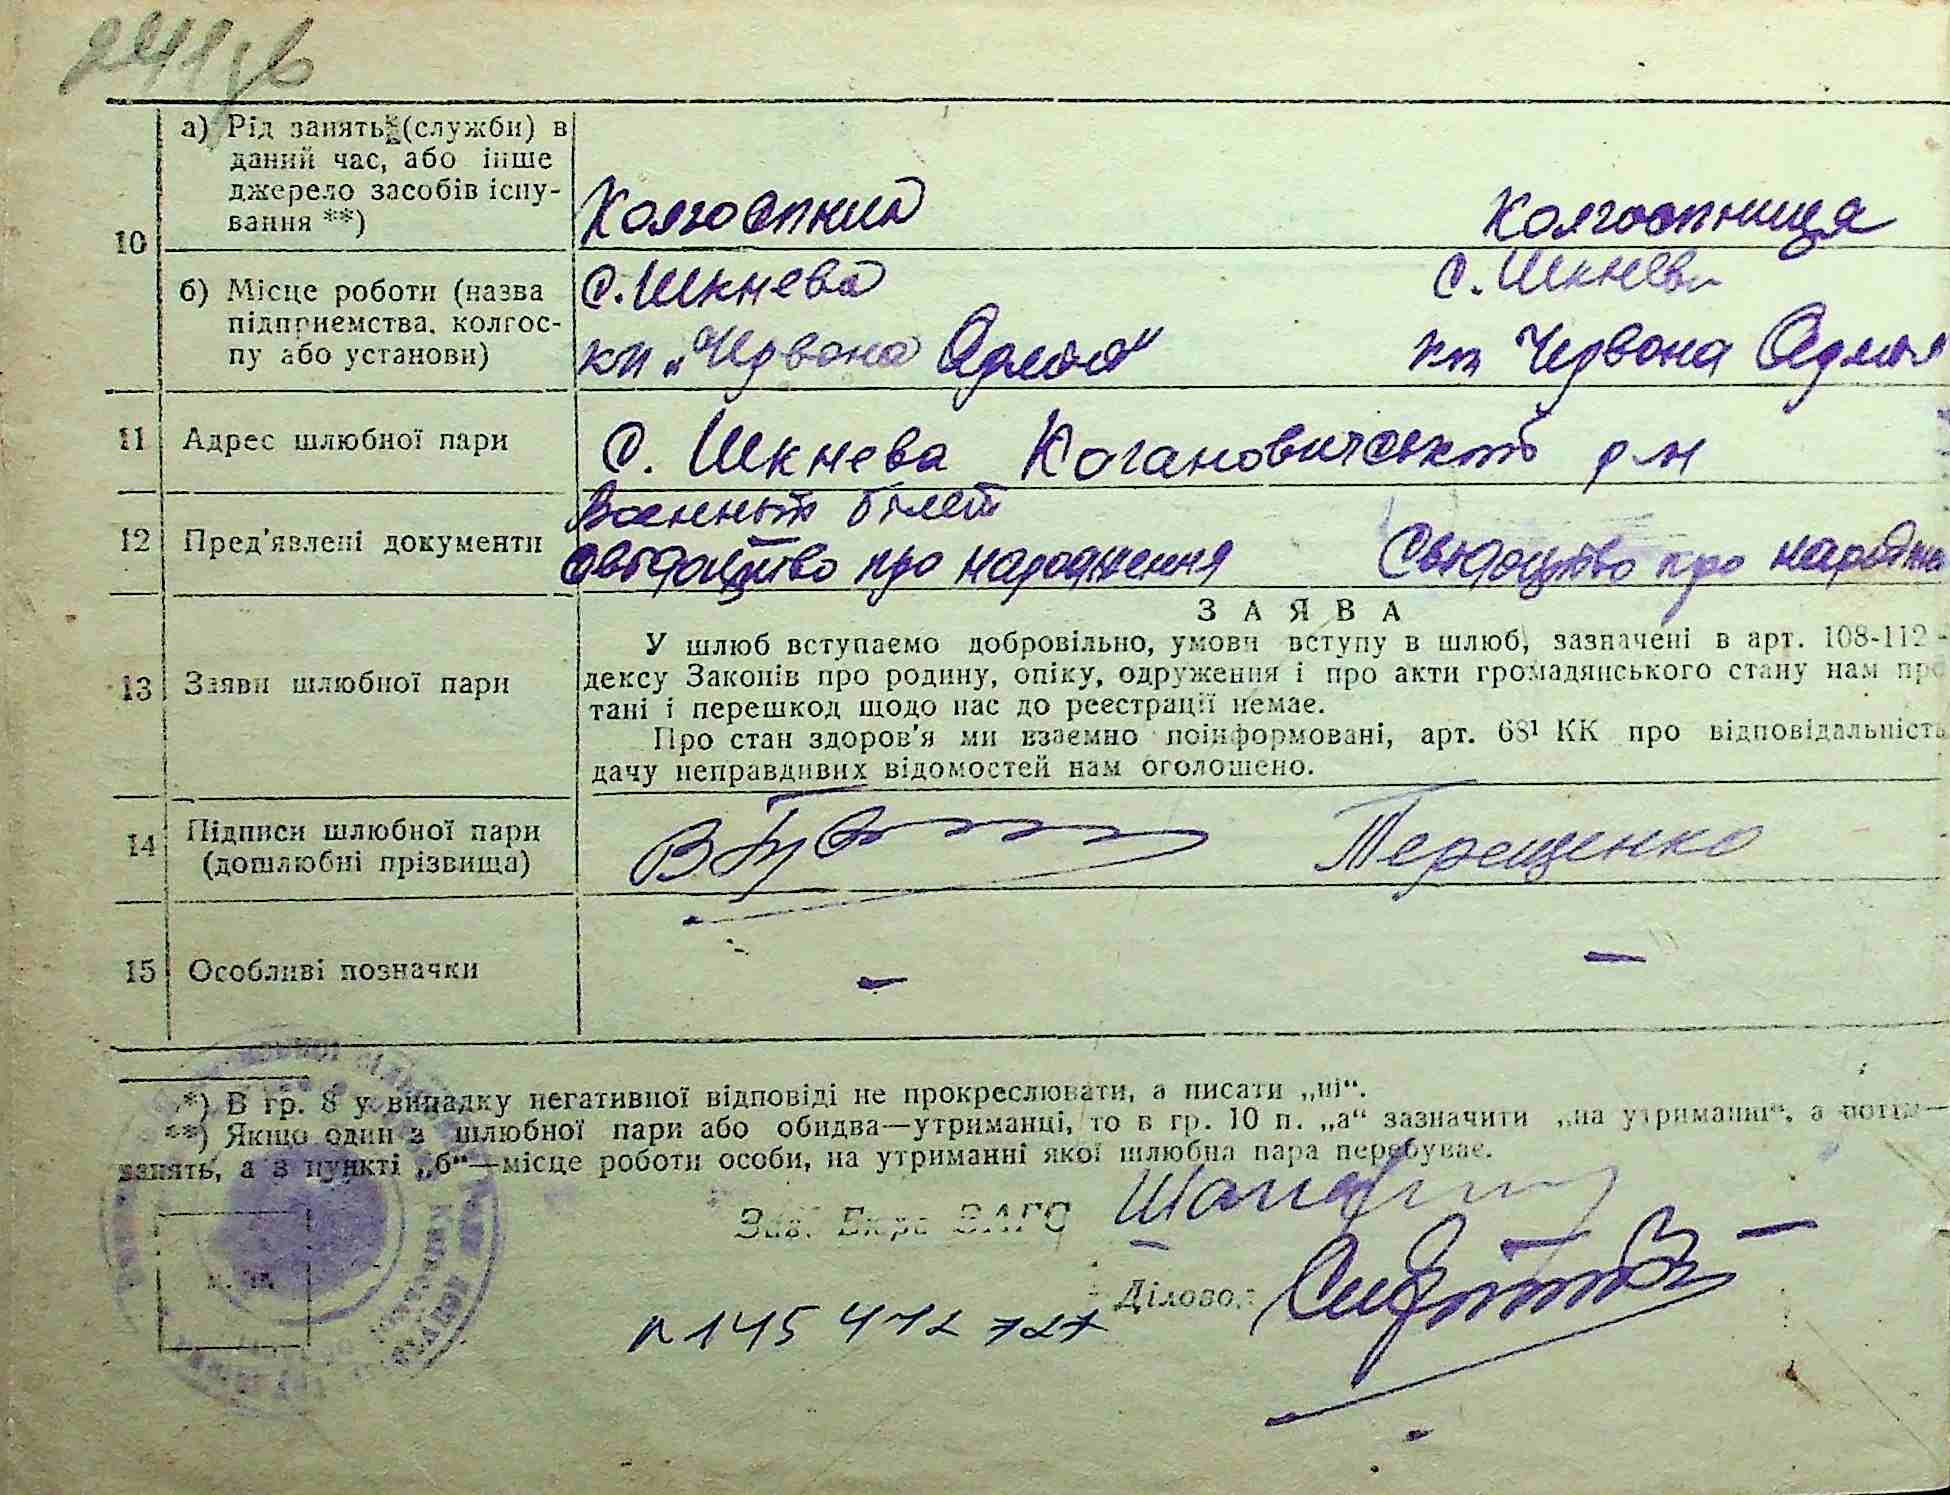 10
а) Рід занять (служби) в
даний час, або інше
джерело засобів існу-
вання **)
Колгоспник
Колгоспниця
б) Місце роботи (назва
підприємства, колгос-
пу або установи)
с. Шкнева
с. Шкнева
кп „Червона Армія“
кп Червона Армія
11
Адрес шлюбної пари
с. Шкнева Кагановичський р-н
12
Пред'явлені документи
Военный білет
свідоцтво про народження
Свідоцтво про народжен
13
Заяви шлюбної пари
ЗАЯВА
У шлюб вступаємо добровільно, умови вступу в шлюб, зазначені в арт. 108-112
дексу Законів про родину, опіку, одруження і про акти громадянського стану нам про
тані і перешкод щодо нас до реєстрації немає.
Про стан здоров'я ми взаємно поінформовані, арт. 68¹ КК про відповідальність
дачу неправдивих відомостей нам оголошено.
14
Підписи шлюбної пари
(дошлюбні прізвища)
Терещенко
15
Особливі позначки
–
–
*) В гр. 8 у випадку негативної відповіді не прокреслювати, а писати „ні“.
**) Якщо один з шлюбної пари або обидва—утриманці, то в гр. 10 п. „а“ зазначити „на утриманні“, а потім—
занять, а в пункті „б“—місце роботи особи, на утриманні якої шлюбна пара перебуває.
Зав. Бюро ЗАГС
Діловод